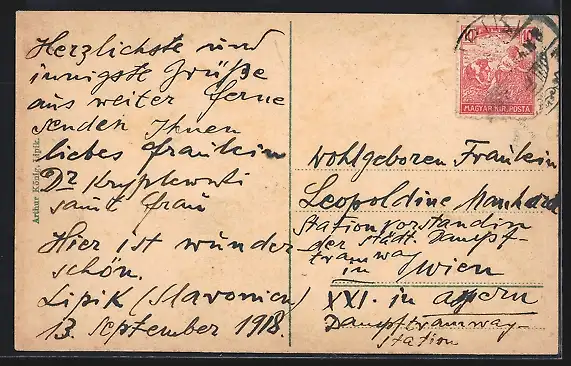 Herzlichste und
innigste Grüße
aus weiter Ferne
senden Ihnen
liebes Fräulein
Dr
samt Frau
Hier ist wunder
schön.
Lipik (Slavonien)
13. September 1918.
Arthur König, Lipik.
10
MAGYAR KIR. POSTA
Wohlgeboren Fraulein
Leopoldine Manhardt
Stationvorstandin
der städt. Dampf-
tramway
in Wien
XXI. in Aspern
Dampftramway-
station